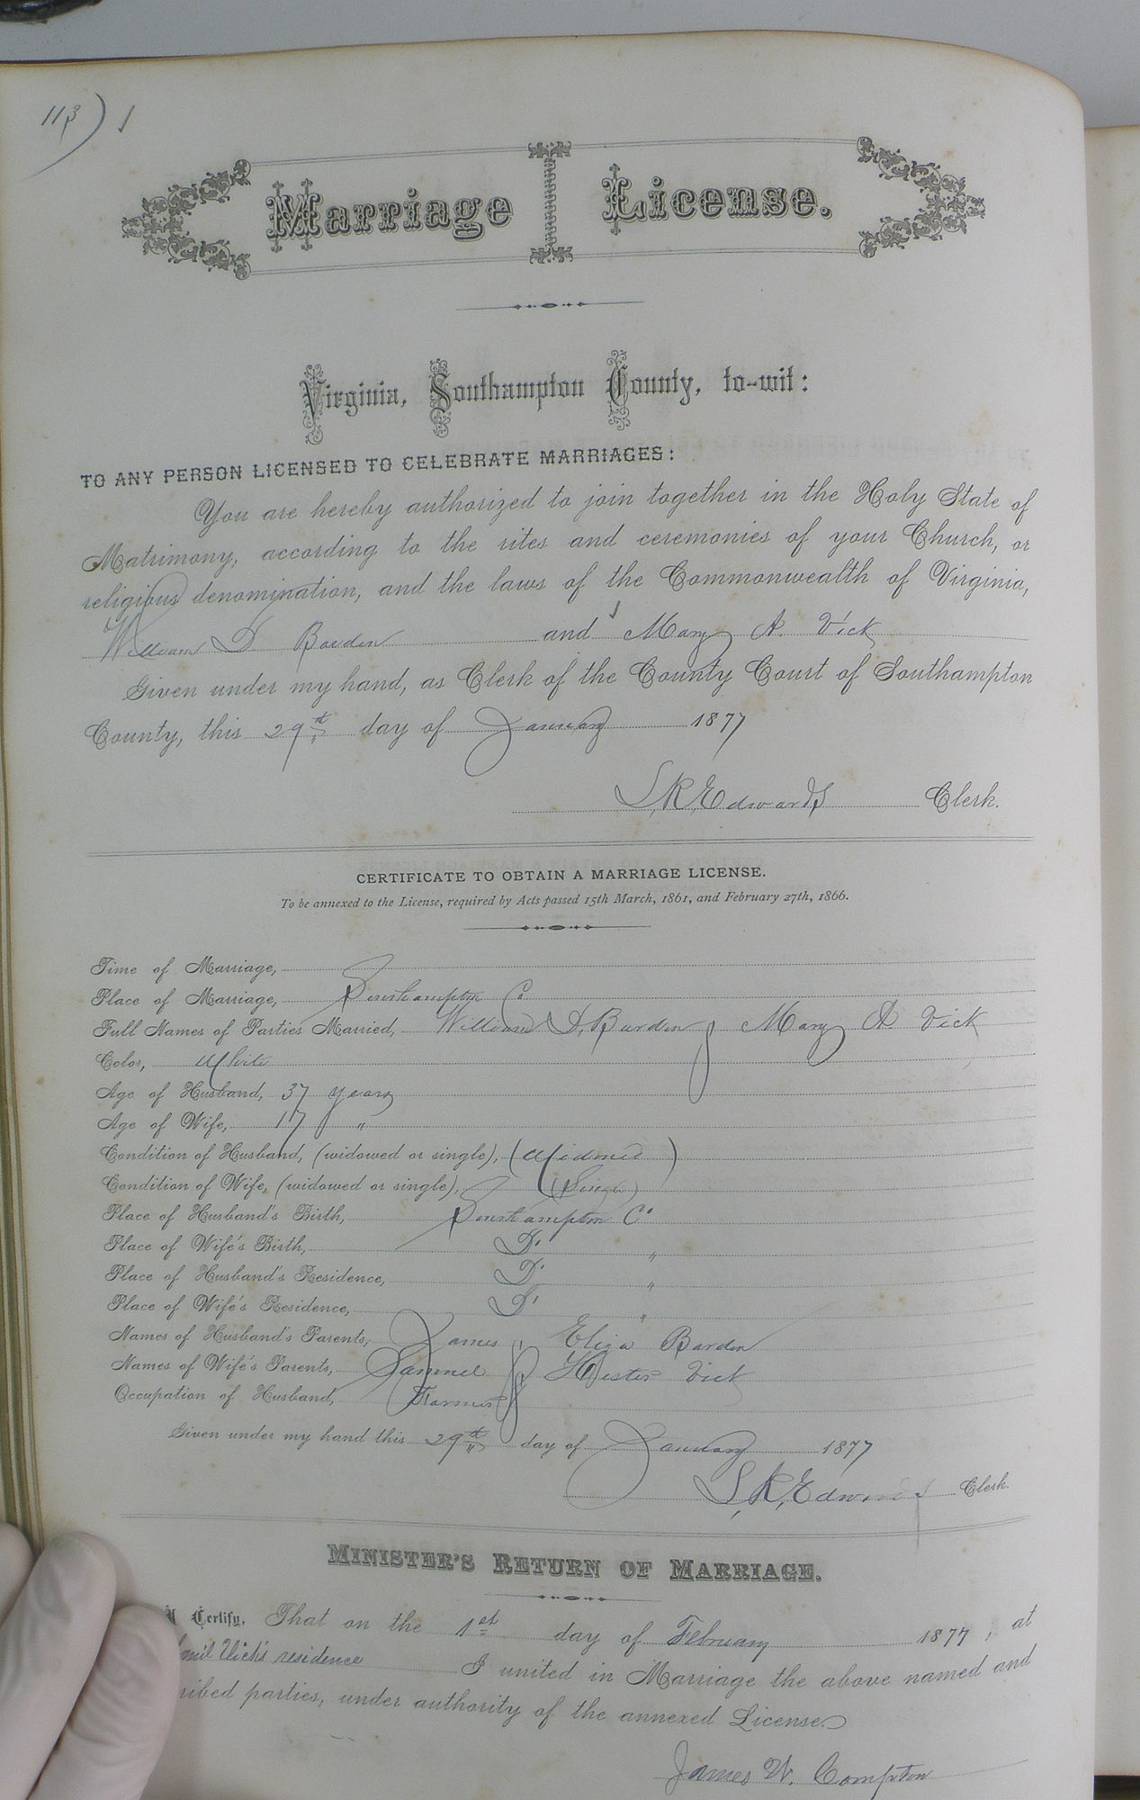 113) 1
Marriage License.
Virginia, Southampton County, to-wit:
TO ANY PERSON LICENSED TO CELEBRATE MARRIAGES:
You are hereby authorized to join together in the Holy State of
Matrimony, according to the rites and ceremonies of your Church, or
religious denomination, and the laws of the Commonwealth of Virginia,
William D. Barden and Mary A. Vick
Given under my hand, as Clerk of the County Court of Southampton
County, this 29th day of January 1877
L. R. Edwards Clerk.
CERTIFICATE TO OBTAIN A MARRIAGE LICENSE.
To be annexed to the License, required by Acts passed 15th March, 1861, and February 27th, 1866.
Time of Marriage,
Place of Marriage, Southampton Co
Full Names of Parties Married, William D. Barden & Mary A Vick
Color, White
Age of Husband, 37 years
Age of Wife, 17 "
Condition of Husband, (widowed or single), (Widowed)
Condition of Wife, (widowed or single), (Single)
Place of Husband's Birth, Southampton Co
Place of Wife's Birth, Do "
Place of Husband's Residence, Do "
Place of Wife's Residence, Do "
Names of Husband's Parents, James & Eliza Barden
Names of Wife's Parents, Samuel & Hester Vick
Occupation of Husband, Farmer
Given under my hand this 29th day of January 1877
L. R. Edwards Clerk.
MINISTER'S RETURN OF MARRIAGE.
Certify, That on the 1st day of February 1877, at
Vick's residence I united in Marriage the above named and
ribed parties, under authority of the annexed License.
James W. Compton